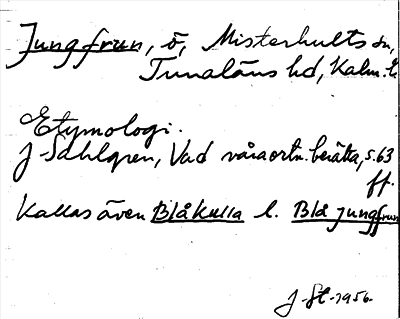 Jungfrun, ö, Misterhults sn,
Tunaläns hd, Kalm. l.
Etymologi.
J Sahlgren, Vad våra ortn. berätta, s. 63
ff.
Kallas även Blåkulla l. Blå jungfrun
J. St. 1956.